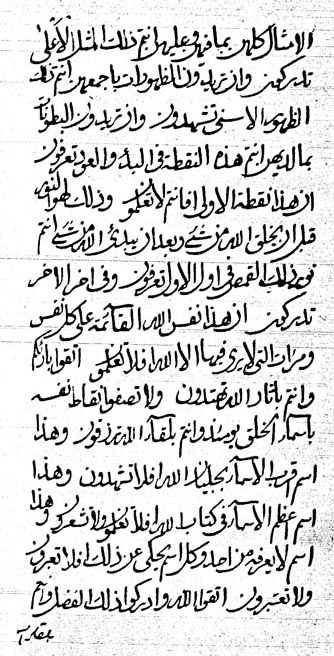 الامثال كلهن بما فيهن وعليهن انتم ذلك المثل الاعلى
تدركون وان تريدون الظهورات باجمعهن انتم ذلك
الظهور الاسنى تشهدون وان تريدون البطونات
بما لديهن انتم هذه النقطة فى البدء والعود تعرفون
ان هذا نقطة الاولى افانتم لا تعلمون وذلك لهو النور
قبل ان يخلق الله من شئ وبعد ان يبدئ الله من شئ انتم
ذلك القمص فى اول الاول تعرفون وفى اخر الاخر
تدركون ان هذا نفس الله القائمة على كل نفس
ومرات التى لا يرى فيها الا الله افلا تعلمون اتقوا بارئكم
وانتم باثار الله تهتدون ولا تصفوا نقاط نفسه
باسماء الخلق يومئذ وانتم بلقاء الله ترزقون وهذا
اسم قرب الاسماء تجليات الله افلا تشهدون وهذا
اسم اعظم الاسماء فى كتاب الله افلا تعلمون ولا تشعرون وهذا
اسم لا يعرفه من احد وكل اسم يحكى عن ذلك افلا تعرفون
ولا تعتبرون اتقوا الله وادركوا ذلك الفضل وانتم
بلقاء